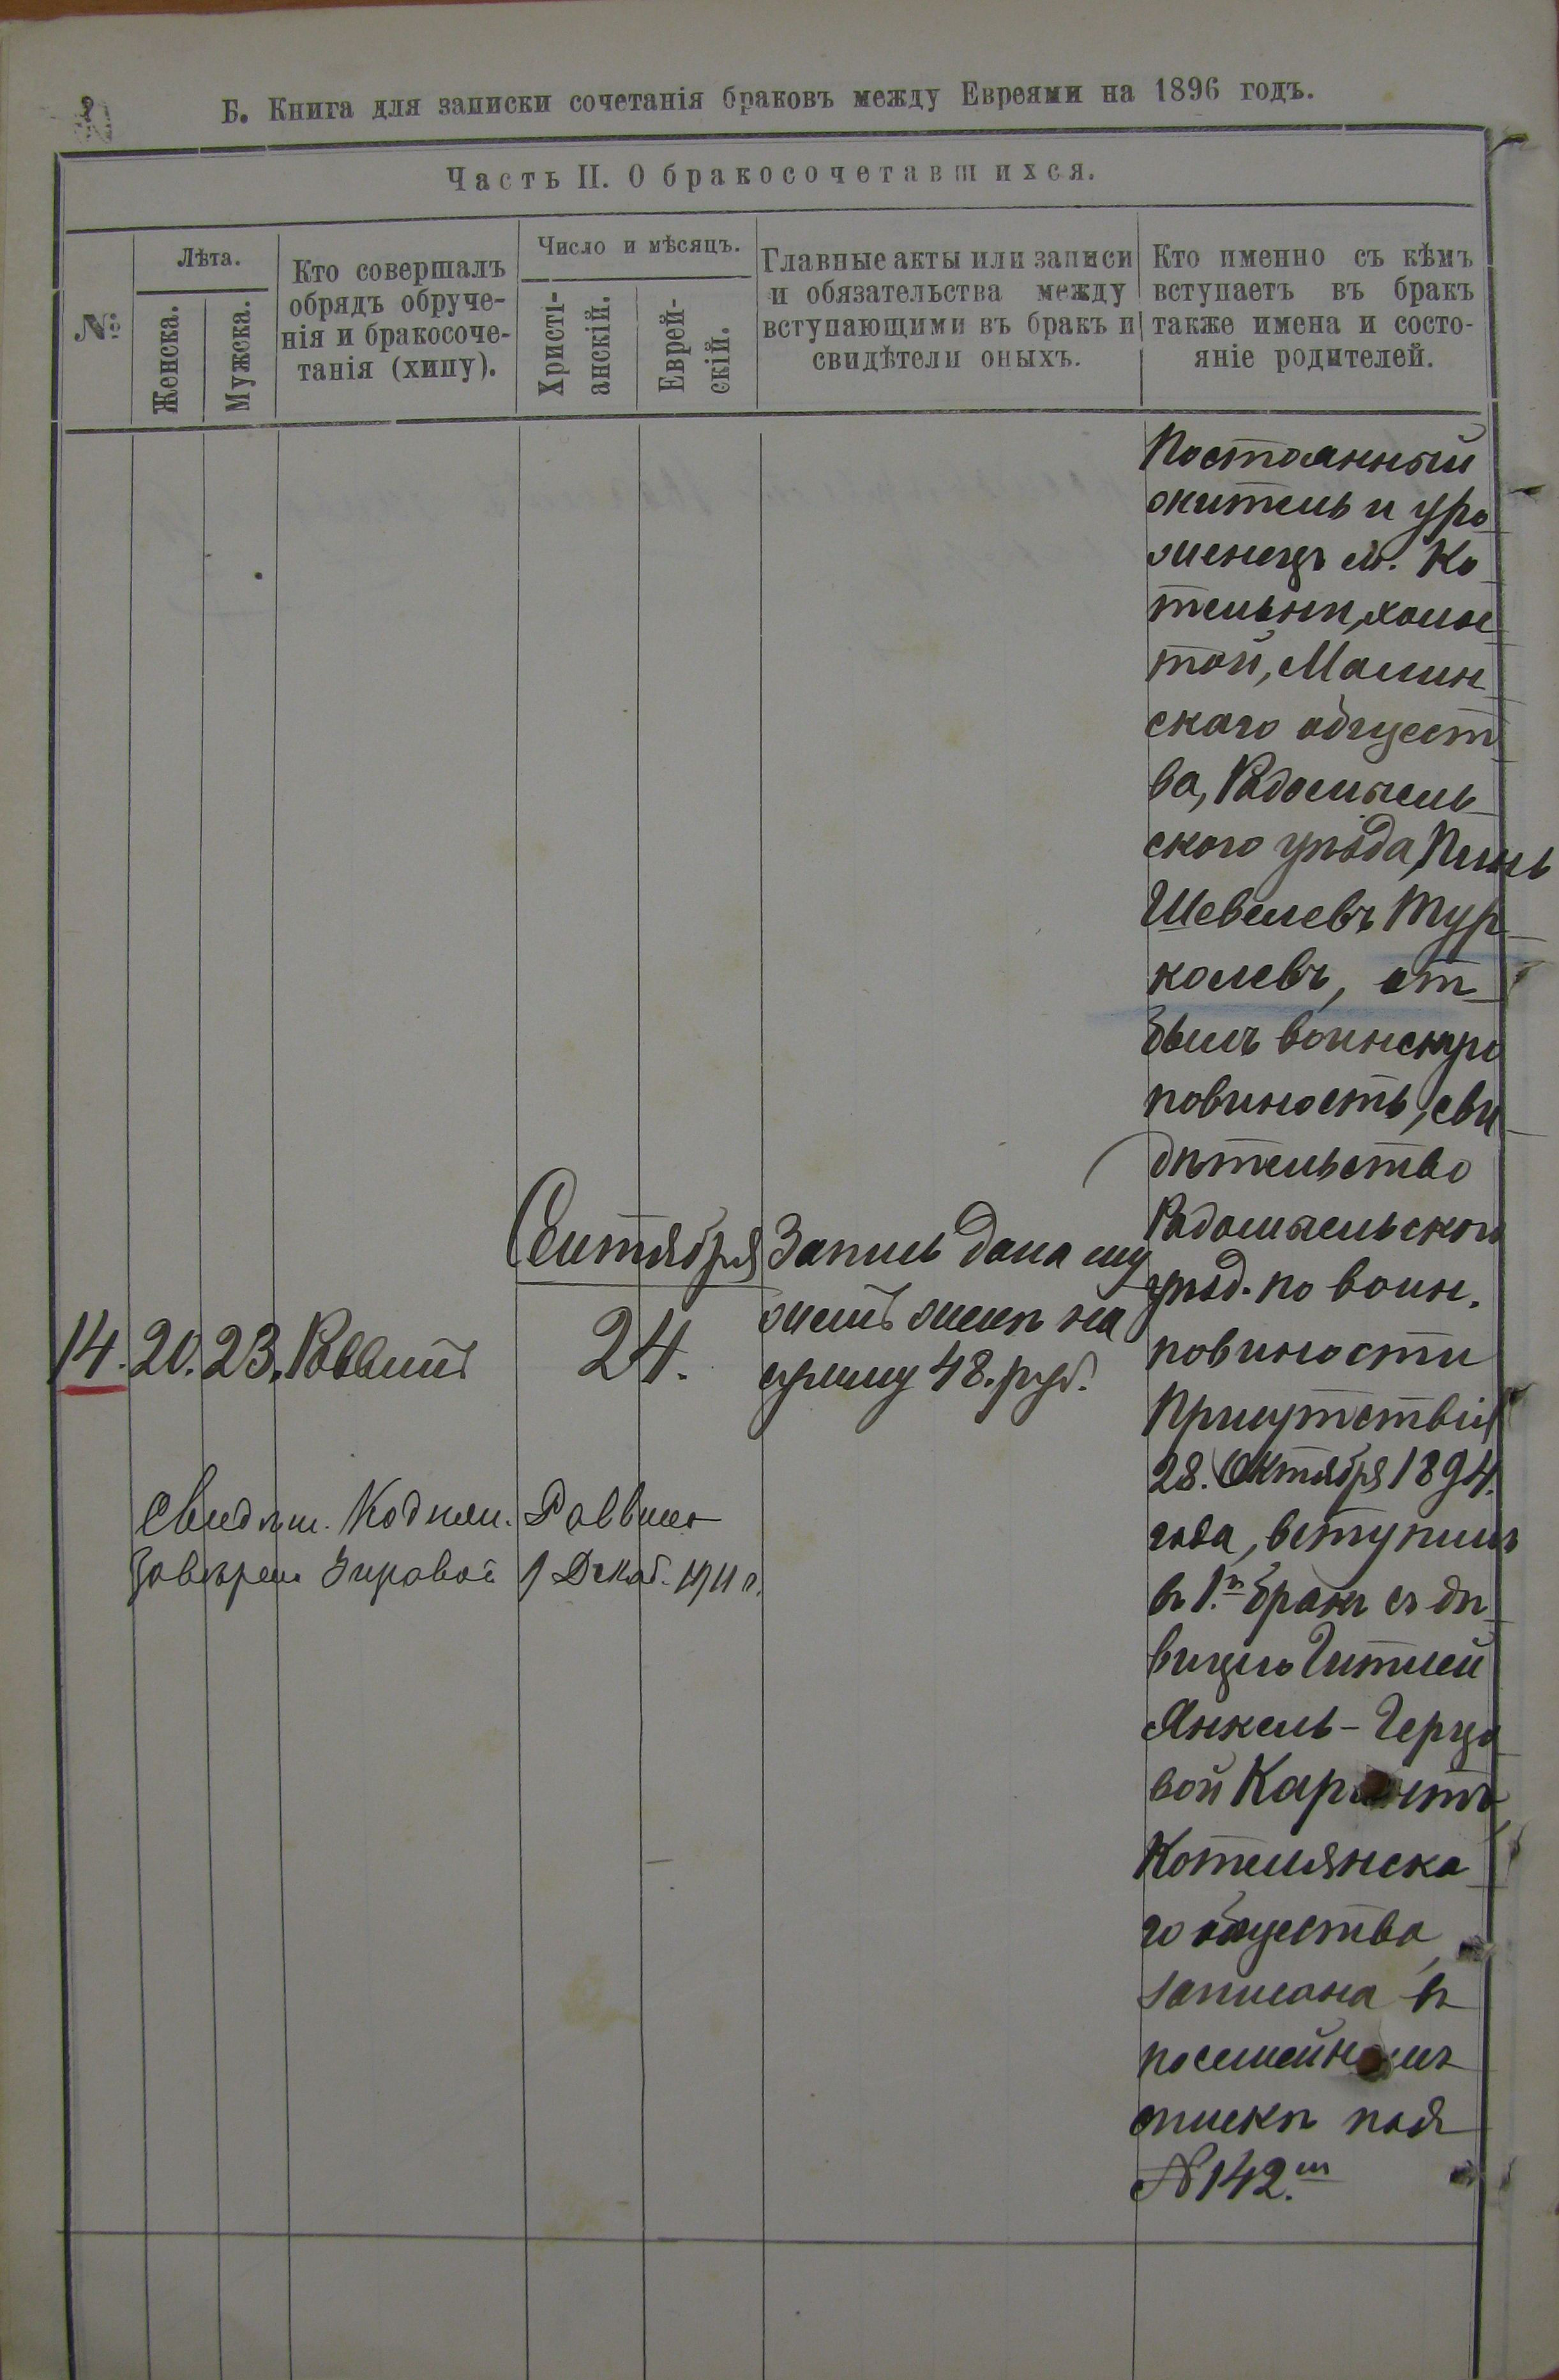 Б. Книга для записки сочетанія браковъ между Евреями на 1896 годъ.
Часть II. О бракосочетавшихся.
№
Лѣта.
Женска.
Мужска.
Кто совершалъ
обрядъ обруче-
нія и бракосоче-
танія (хипу).
Число и мѣсяцъ.
Христі-
анскій.
Еврей-
скій.
Главные акты или записи
и обязательства между
вступающими въ бракъ и
свидѣтели оныхъ.
Кто именно съ кѣмъ
вступаетъ въ бракъ
также имена и состо-
яніе родителей.
14. 20. 23. Раввинъ
Сентября
24.
Запись дана му
жемъ женѣ на
сумму 48. руб.
Постоянный
житель и уро
женецъ м. Ко
тельни, холос
той, Малин
скаго общест
ва, Радомысль
ского уѣзда,
Шевелевъ Тур
колевъ, от
былъ воинскую
повиность, сви
дѣтельство
Радомысльского
уѣзд. по воин.
повиности
Присутствія
28. Октября 1894.
года, вступилъ
въ 1.й бракъ съ дѣ
вицею Гитлей
Янкель-Герцо
вой
Котелянска
го общества,
записана въ
посемейномъ
спискѣ подъ
№ 142.мъ
Свидѣт. Раввинъ
1 Декаб. 1911 г.